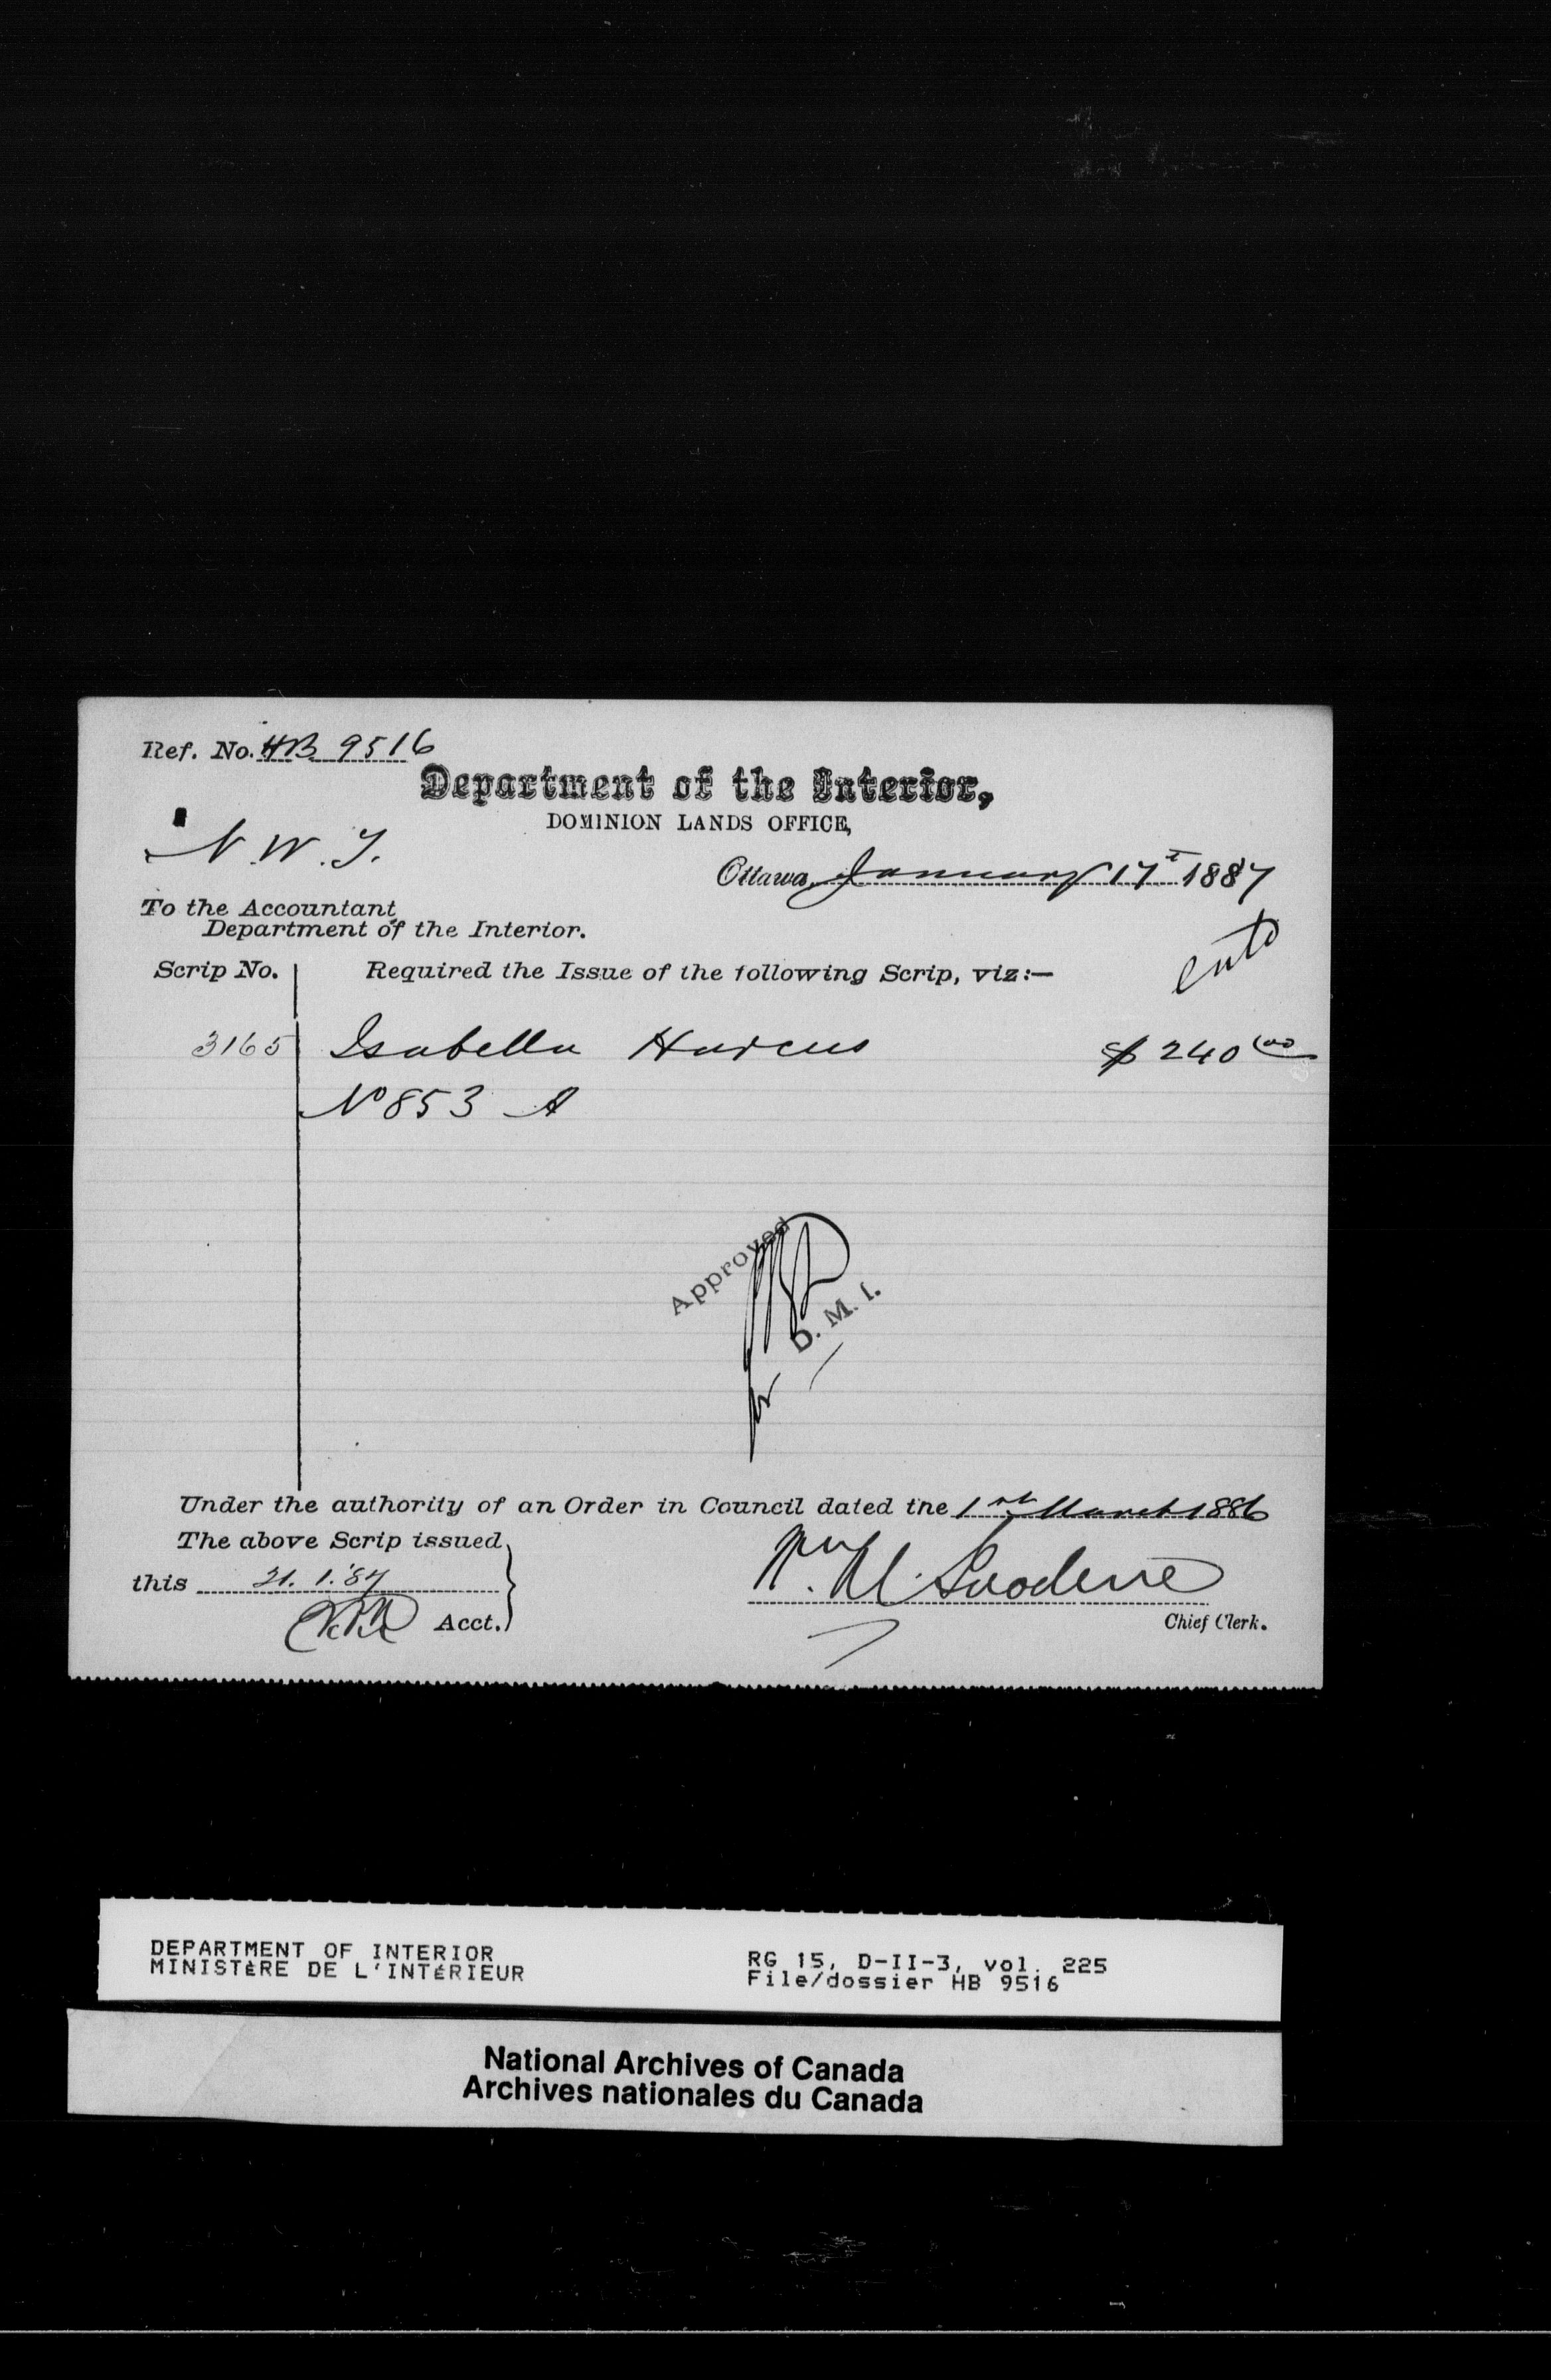 Ref. No. HB 9516
Department of the Interior,
DOMINION LANDS OFFICE,
N.W.T.
Ottawa, January 17th 1887
To the Accountant
Department of the Interior.
entd
Scrip No. Required the Issue of the following Scrip, viz:—
3165 Isabella Harcus $ 240 00
No 853 A
Approved
for D. M. I.
Under the authority of an Order in Council dated the 1st March 1886
The above Scrip issued
this 21. 1. '87
Acct.
Chief Clerk.
DEPARTMENT OF INTERIOR
MINISTÈRE DE L'INTÉRIEUR
RG 15, D-II-3, vol. 225
File/dossier HB 9516
National Archives of Canada
Archives nationales du Canada